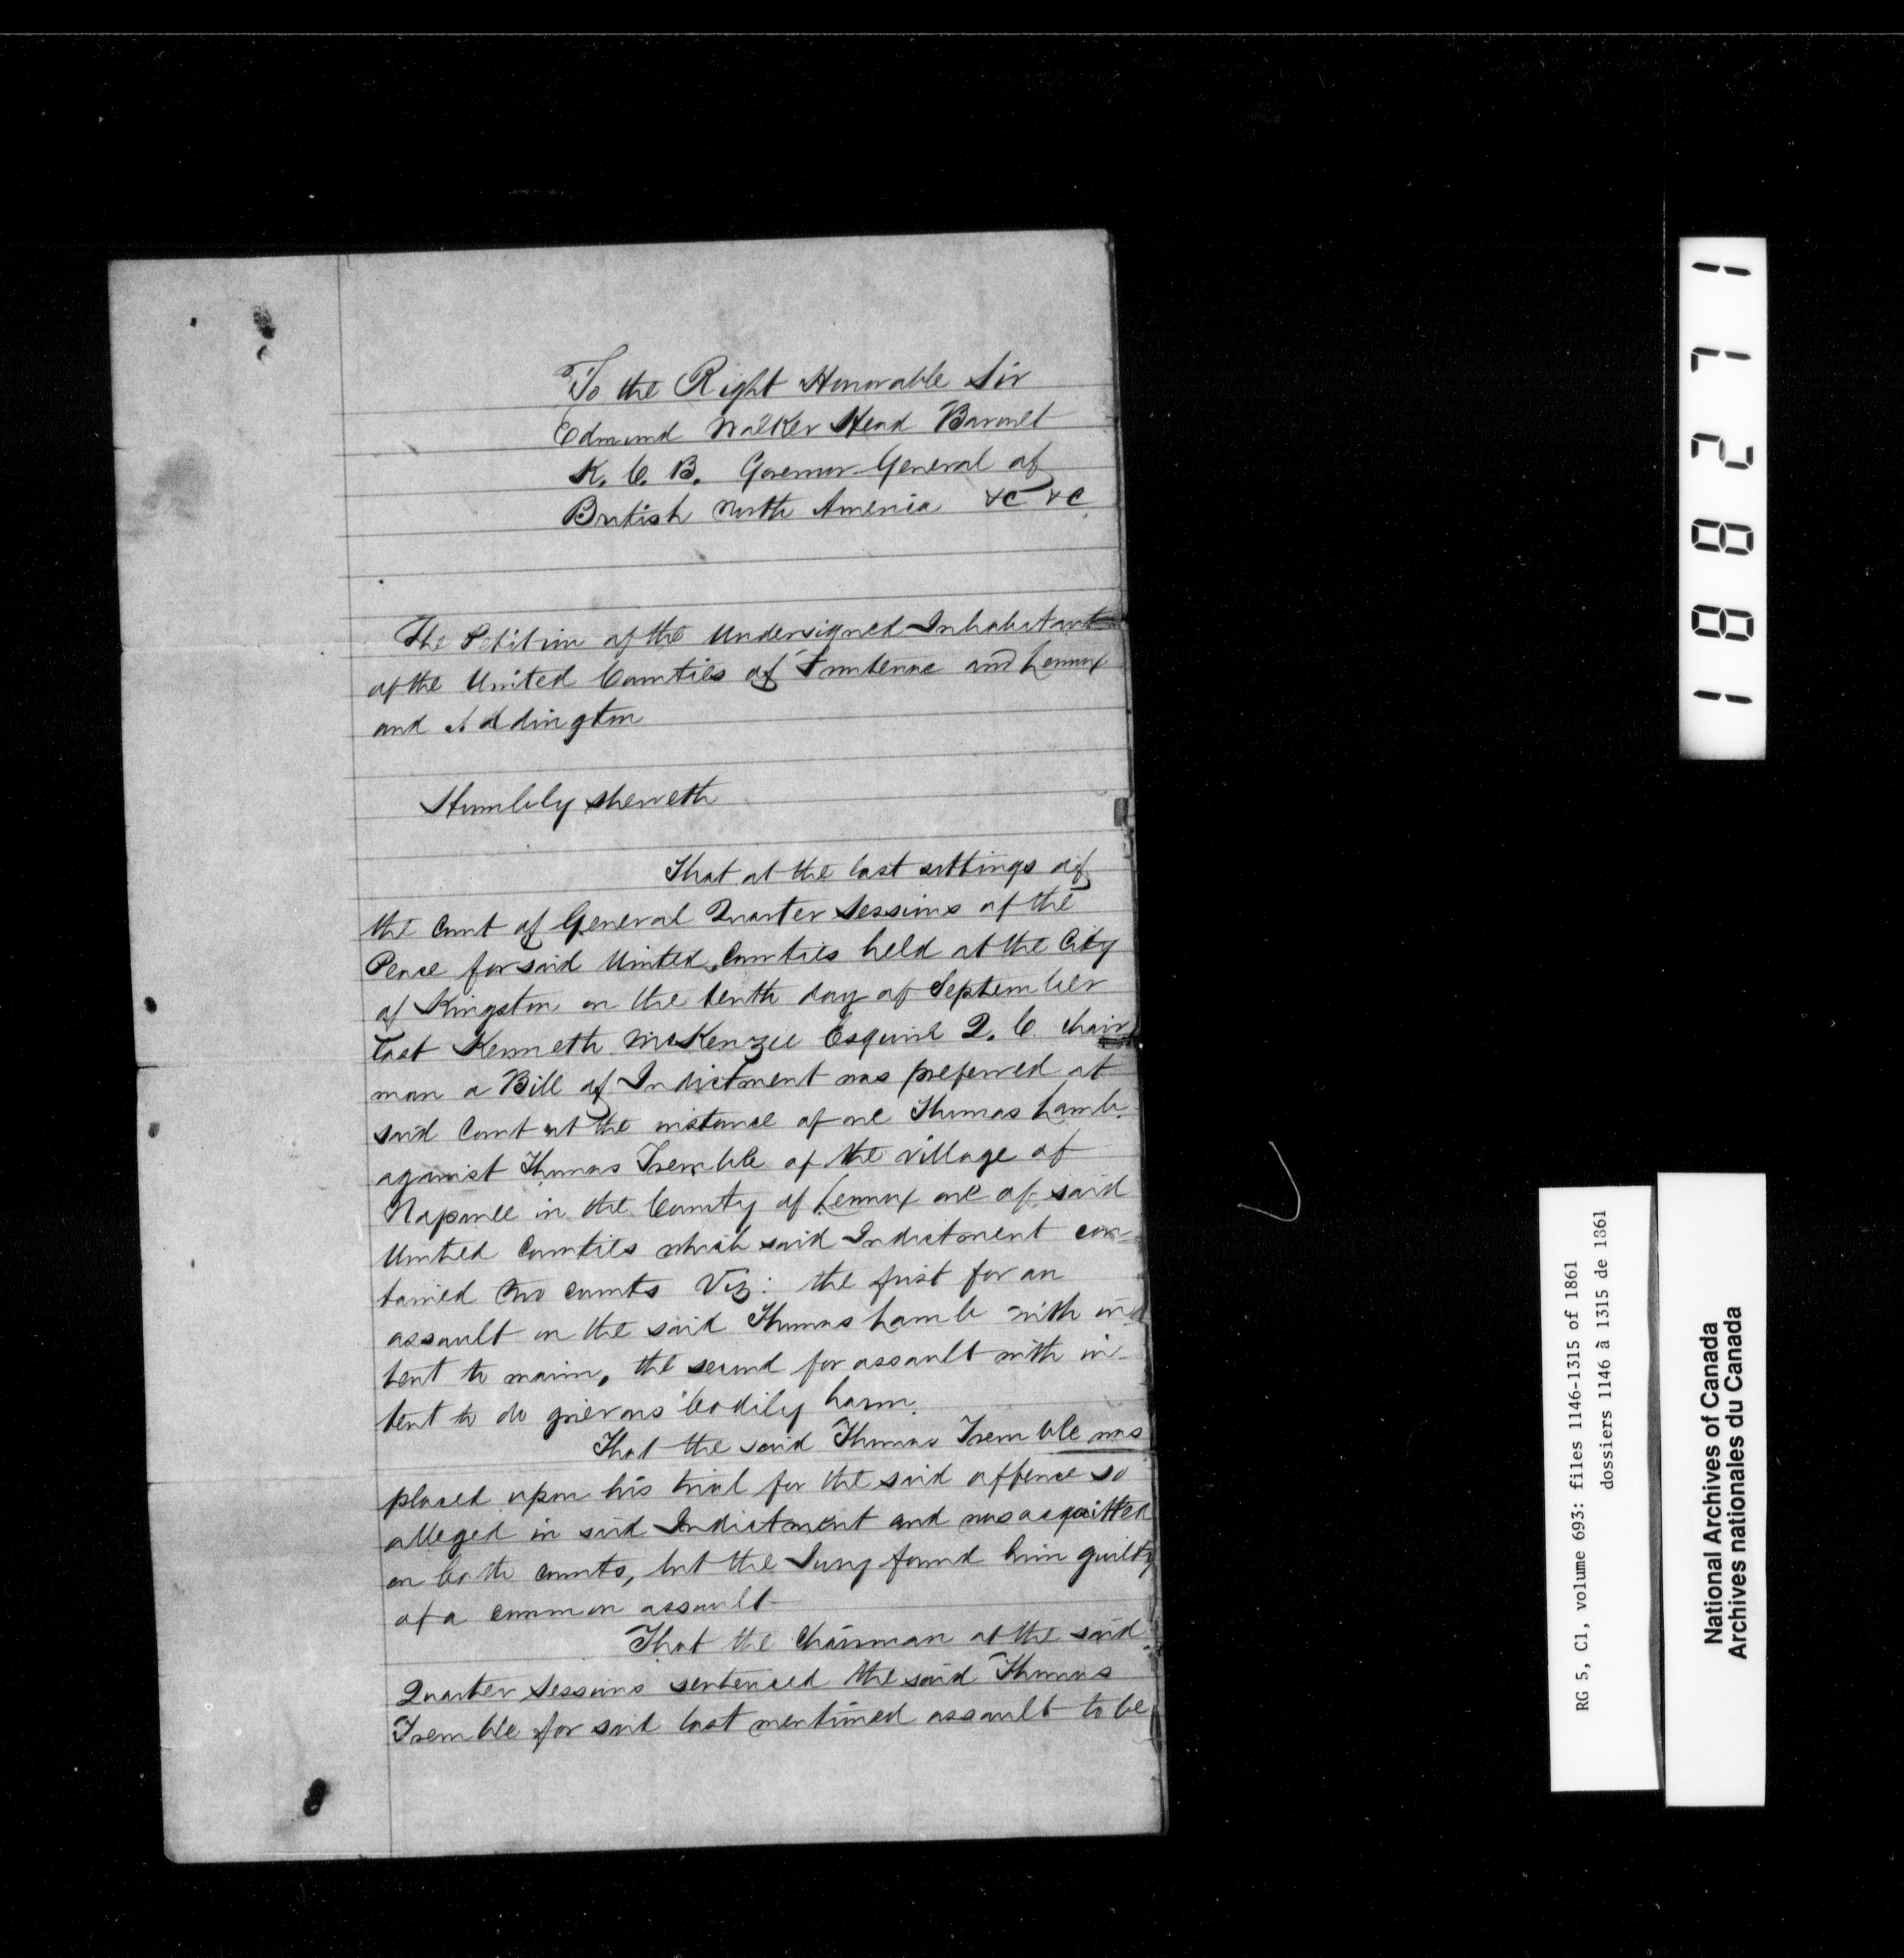 To the Right Honorable Sir
Edmund Walker Head Baronet
K. C. B. Governor General of
British North America &c &c.
The Petition of the Undersigned Inhabitants
of the United Counties of Frontenac and Lennox
and Addington
Humbly sheweth
That at the last sittings of
the Court of General Quarter Sessions of the
Peace for said United Counties held at the City
of Kingston on the tenth day of September
last Kenneth McKenzie Esquire Q. C. Chair
man a Bill of Indictment was preferred at
said Court at the instance of one Thomas Lamb
against Thomas Tremble of the village of
Napanee in the County of Lennox one of said
United Counties which said Indictment con=
tained two counts Viz: the first for an
assault on the said Thomas Lamb with in=
tent to maim, the second for assault with in-
tent to do grievous bodily harm.
That the said Thomas Tremble was
placed upon his trial for the said offence so
alleged in said Indictment and was acquitted
on both counts, but the Jury found him guilty
of a common assault
That the Chairman at the said
Quarter Sessions sentenced the said Thomas
Tremble for said last mentioned assault to be
188271
RG 5, C1, volume 693: files 1146-1315 of 1861
dossiers 1146 à 1315 de 1861
National Archives of Canada
Archives nationales du Canada